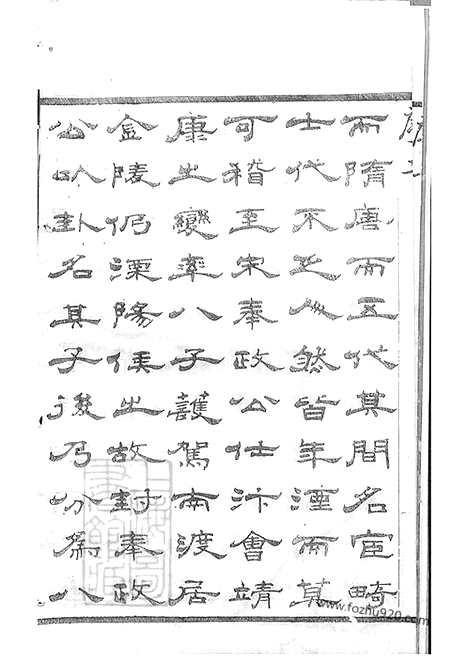 而隋唐而五代其間名宦畸
士代不乏人然皆年湮而莫
可稽至宋奉政公仕汴會靖
康之變率八子護駕南渡居
金陵仍溧陽侯之故封奉政
公以卦名其子後乃分為八
www.fozhu920.com